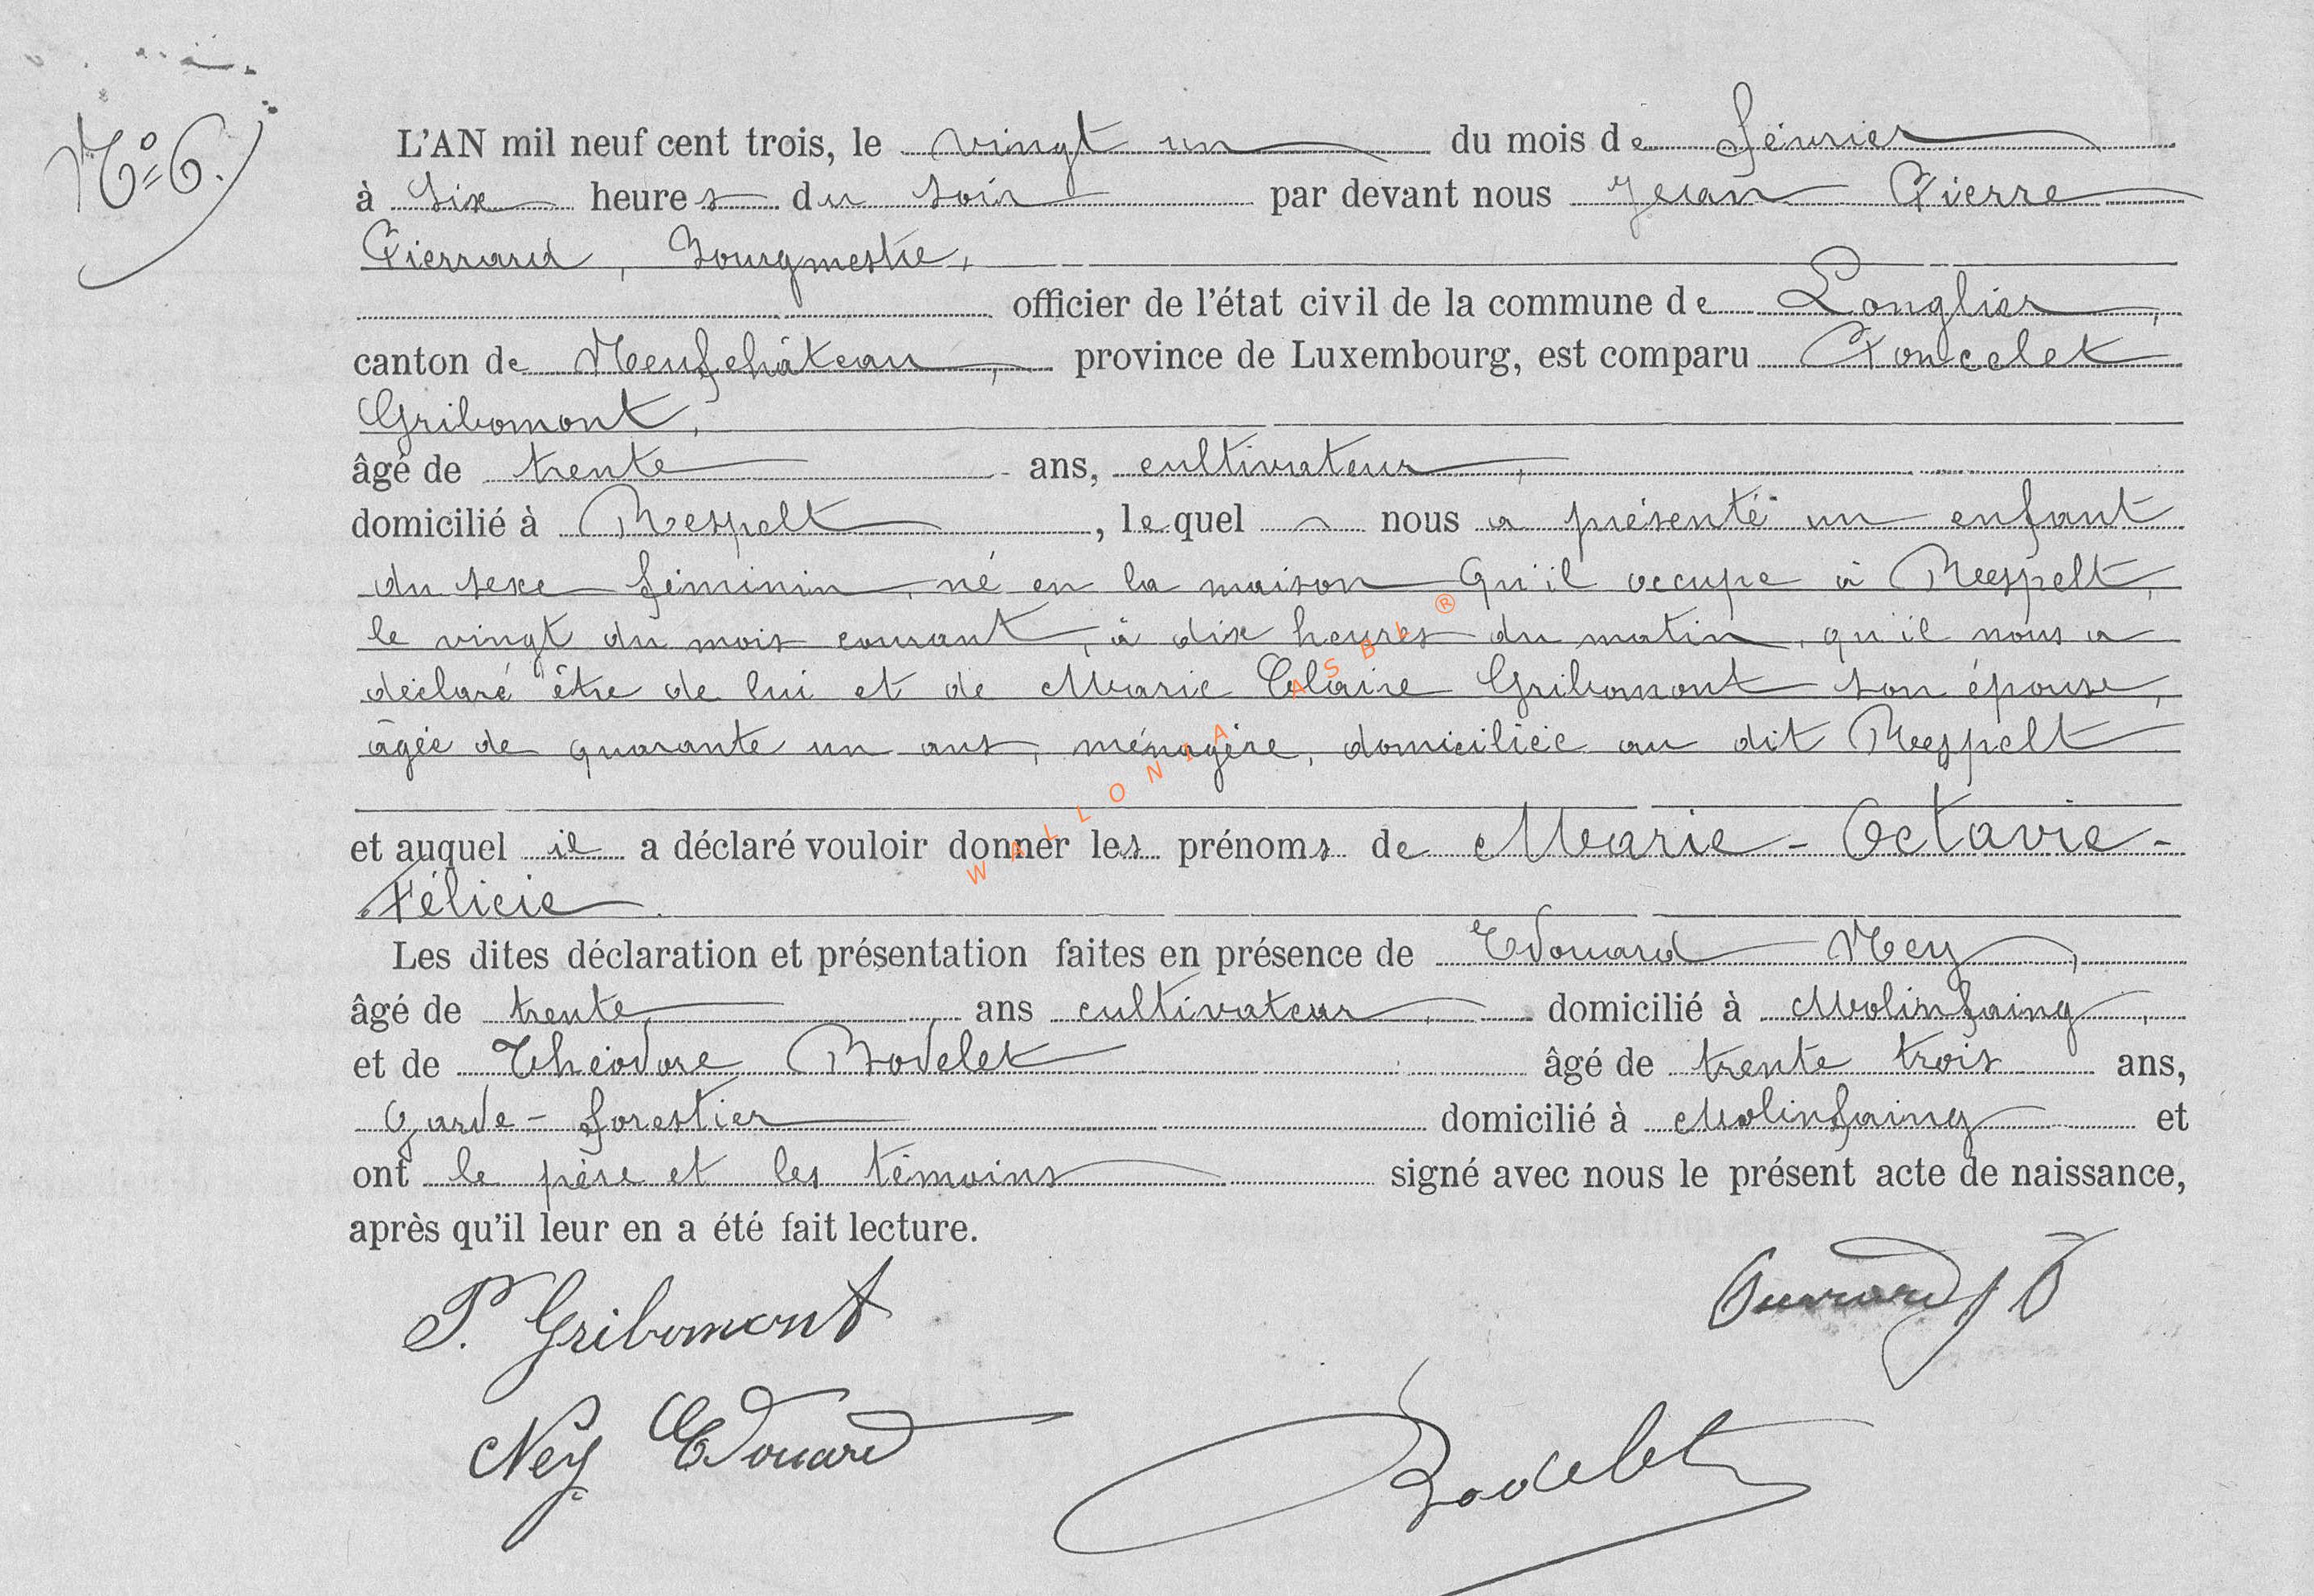 N° 6.
L'AN mil neuf cent trois, le vingt un du mois de février
à six heures du soir par devant nous Jean Pierre
Pierrard, Bourgmestre,
officier de l'état civil de la commune de Longlier,
canton de Neufchâteau, province de Luxembourg, est comparu Poncelet
Gribomont,
âgé de trente ans, cultivateur,
domicilié à Respelt, lequel nous a présenté un enfant
du sexe féminin, né en la maison qu'il occupe à Respelt,
le vingt du mois courant, à dix heures du matin, qu'il nous a
déclaré être de lui et de Marie Claire Gribomont son épouse,
âgée de quarante un ans, ménagère, domiciliée au dit Respelt
et auquel il a déclaré vouloir donner les prénoms de Marie-Octavie-
Félicie.
Les dites déclaration et présentation faites en présence de Edouard Ney,
âgé de trente ans cultivateur, domicilié à Molinfaing,
et de Théodore Bodelet âgé de trente trois ans,
garde-forestier domicilié à Molinfaing et
ont le père et les témoins signé avec nous le présent acte de naissance,
après qu'il leur en a été fait lecture.
P. Gribomont
Pierrard J P
Ney Edouard
Bodelet
WALLONIA ASBL ®